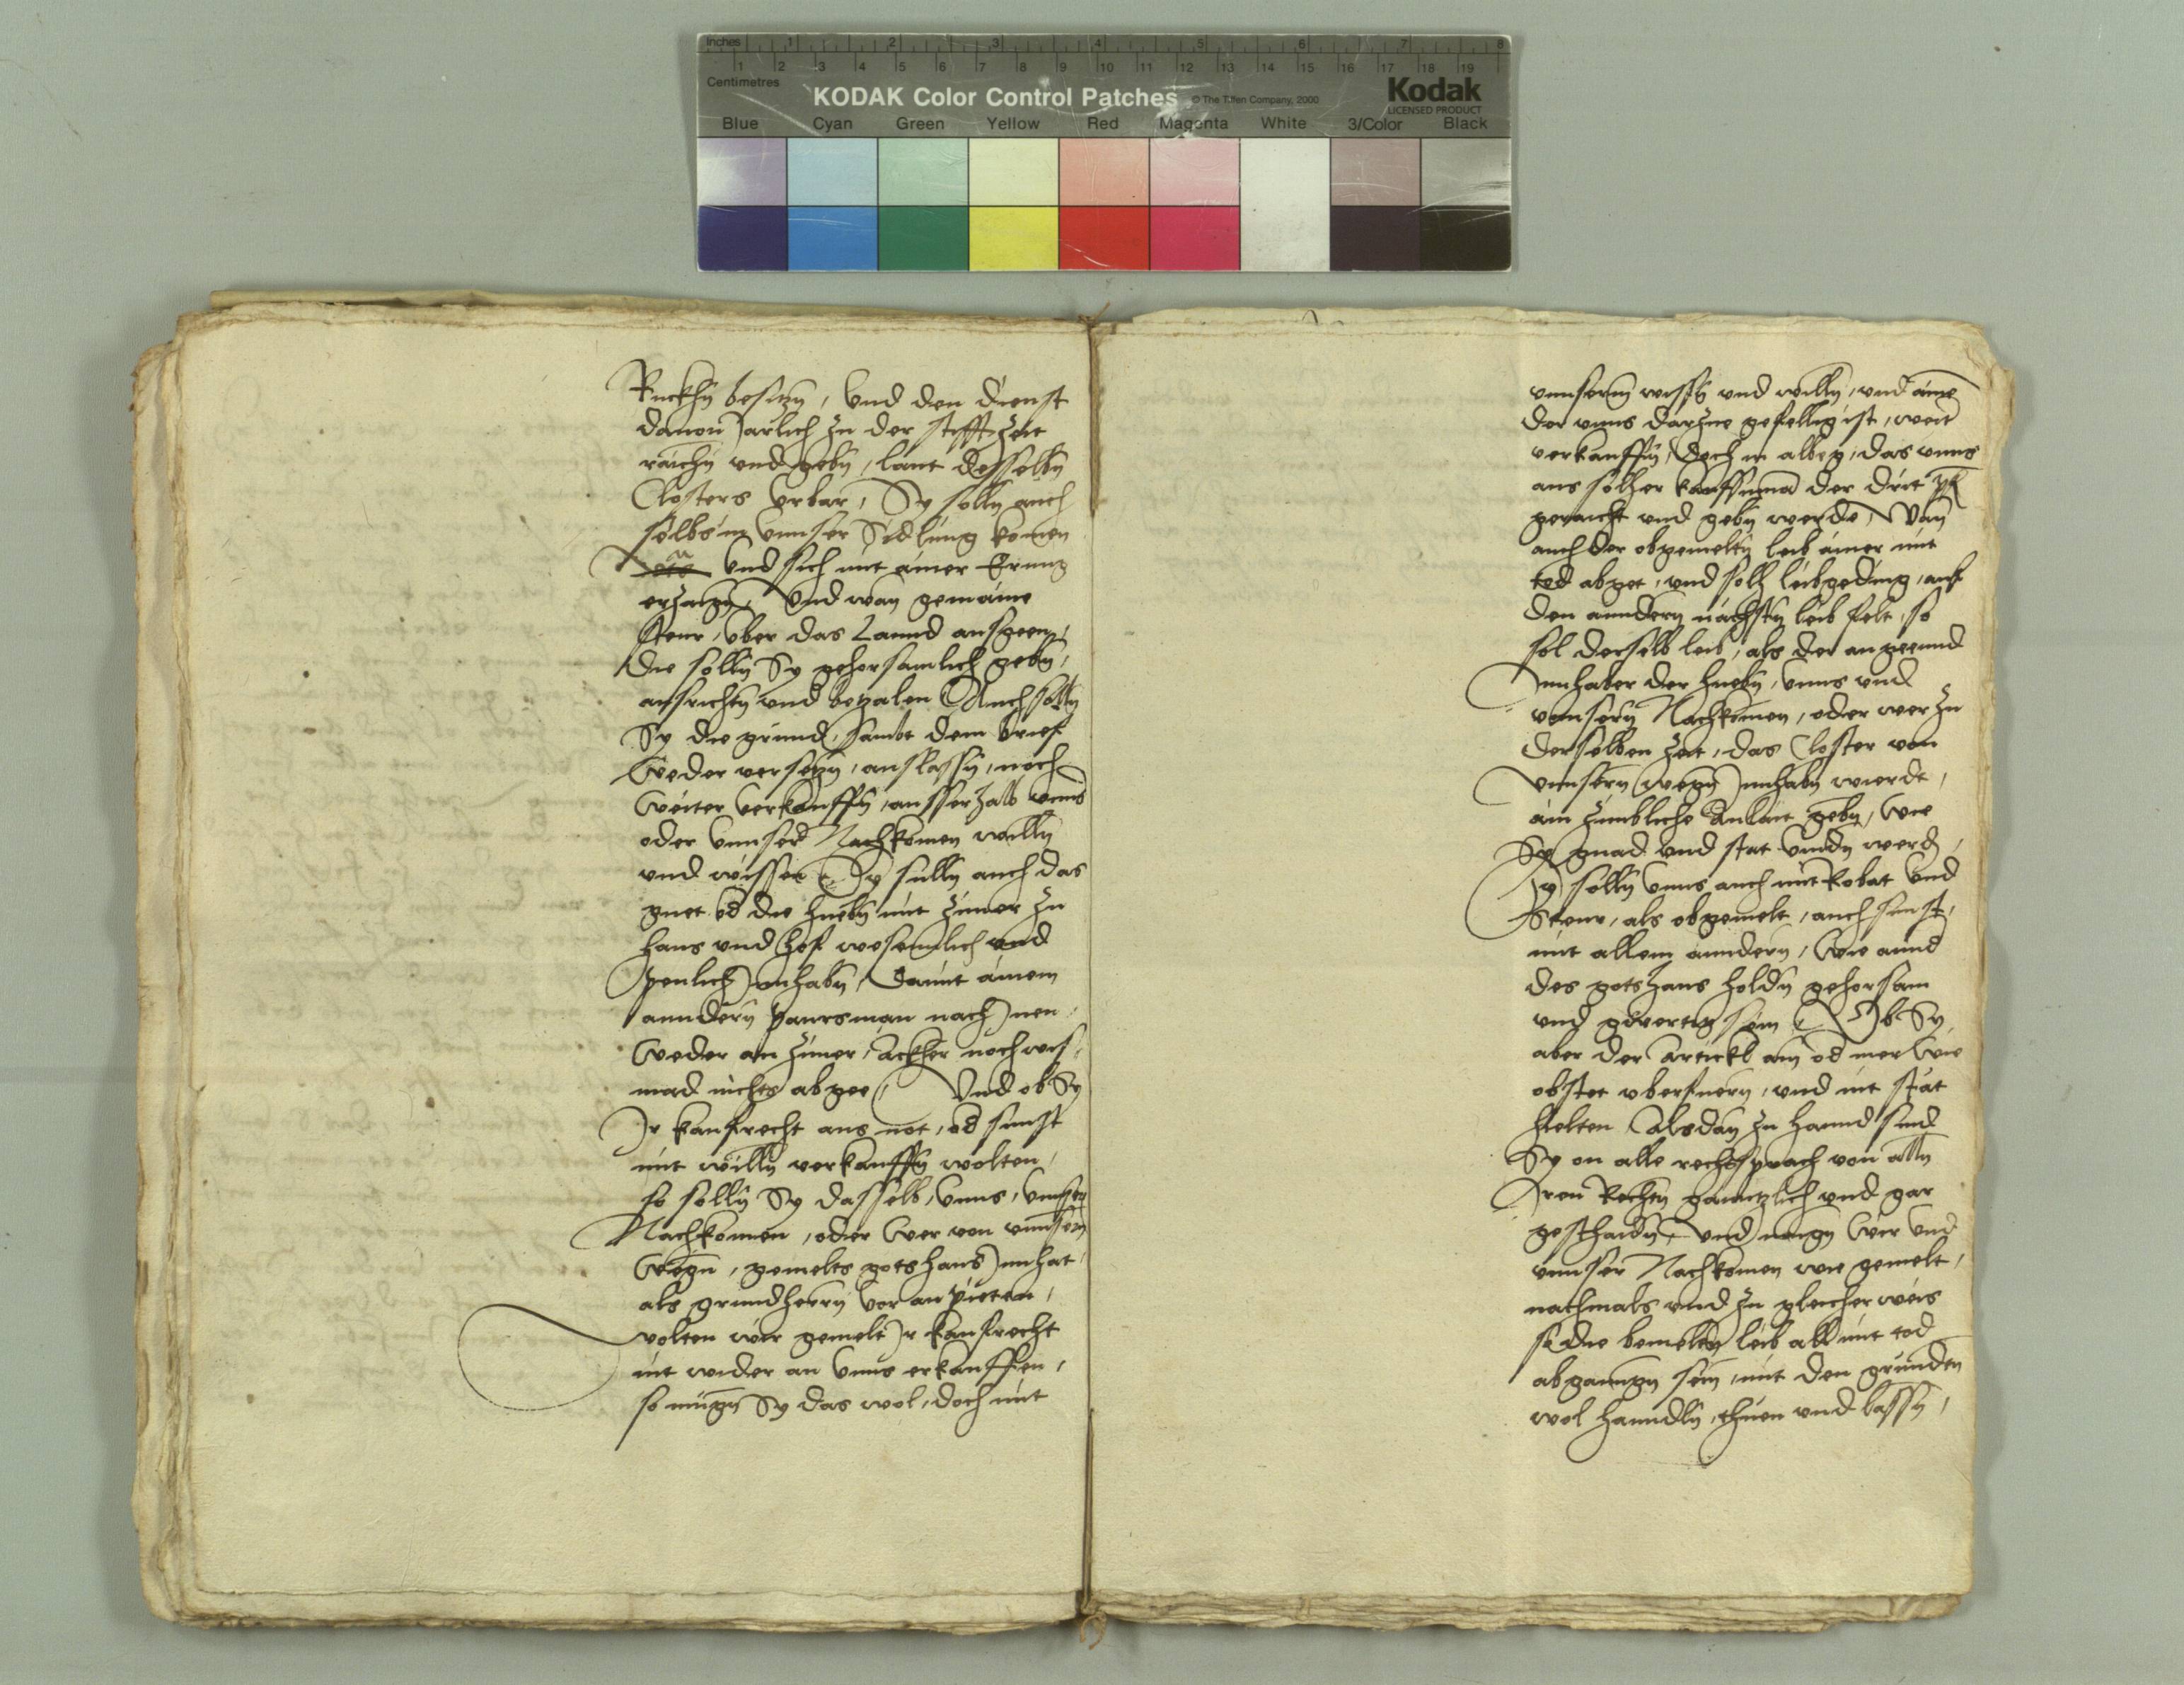 Inches 1 2 3 4 5 6 7 8
Centimetres 1 2 3 4 5 6 7 8 9 10 11 12 13 14 15 16 17 18 19
KODAK Color Control Patches © The Tiffen Company, 2000 Kodak
LICENSED PRODUCT
Blue Cyan Green Yellow Red Magenta White 3/Color Black
Ruckhn besitzn, Vnd den dienst
dauon Jarlich zu der stifft zeit
raichn vnd gebn, laut desselbn
Closters vrbar, Sy solln auch
selbs in vnnser Sidlung komen
Vnd sich mit ainer Erung
erzaign, Vnd wan gemaine
Steur, vber das Lannd ausgeen,
die solln Sy gehorsamlich gebn,
ausrichtn vnd betzalen Auch solln
Sy die grund, sambt dem brief
Weder versetzn, auslassn, noch
Weiter verkauffn, ausserhalb vnns
oder vnnser Nachkomen willn
vnd wissen Sy sulln auch das
guet od die huebn mit zimer zu
haus vnd hof wesennlich vnd
peulich Innhabn, damit ainem
anndern paursman nach Inen
Weder an zimer, ackher noch wis
mad nichts abgee, Vnd ob Sy
Ir kaufrecht aus not, od sunst
mit willn verkauffn wolten,
so solln Sy dasselb, vnns, vnnsern
Nachkomen, oder Wer von vnnsern
Wegn, gemelts gotshaus Innhat,
als grundherrn vor an pieten,
wolten wir gemelt Ir kaufrecht
nit wider an vnns erkauffen,
so mugn Sy das wol, doch mit
vnnserm wissn vnd willn, vnd aine
der vnns darzue gefellig ist, weit
verkauffn, doch in albeg, das vnns
aus solher kaufsuma der drit
geraicht vnd gebn werde, Wan
auch der obgemeltn leib ainer mit
tod abget, vnd solh leibgeding, auf
den anndern nachstn leib felt, so
sol derselb leib, als der angeennd
Innhaber der huebn, vnns vnd
vnnsern Nachkomen, oder wer zu
derselben zeit, das Closter von
vnnsern wegn Innhabn wierdt,
ain zimbliche Anlait gebn, Wie
Sy gnad vnd stat vindn werd,
Sy solln vnns auch mit Robat vnd
Steur, als obgemelt, auch sunst,
mit allem anndern, Wie annd
des gotshaus holdn gehorsam
vnd gewertig sein Ob Sy
aber der artickl ain od mer Wie
obstet vberfuern, vnd nit stat
hielten Alsdan zu hannd sind
Sy on alle rechtsprach von alln
Iren Rechtn ganntzlich vnd gar
geschaidn, vnd mugn Wir vnd
vnnser Nachkomen wie gemelt,
nachmals vnd zu gleicher weis
so die bemeltn leib all mit tod
abganngn sein, mit den grunden
wol hanndln, thuen vnd lassn,